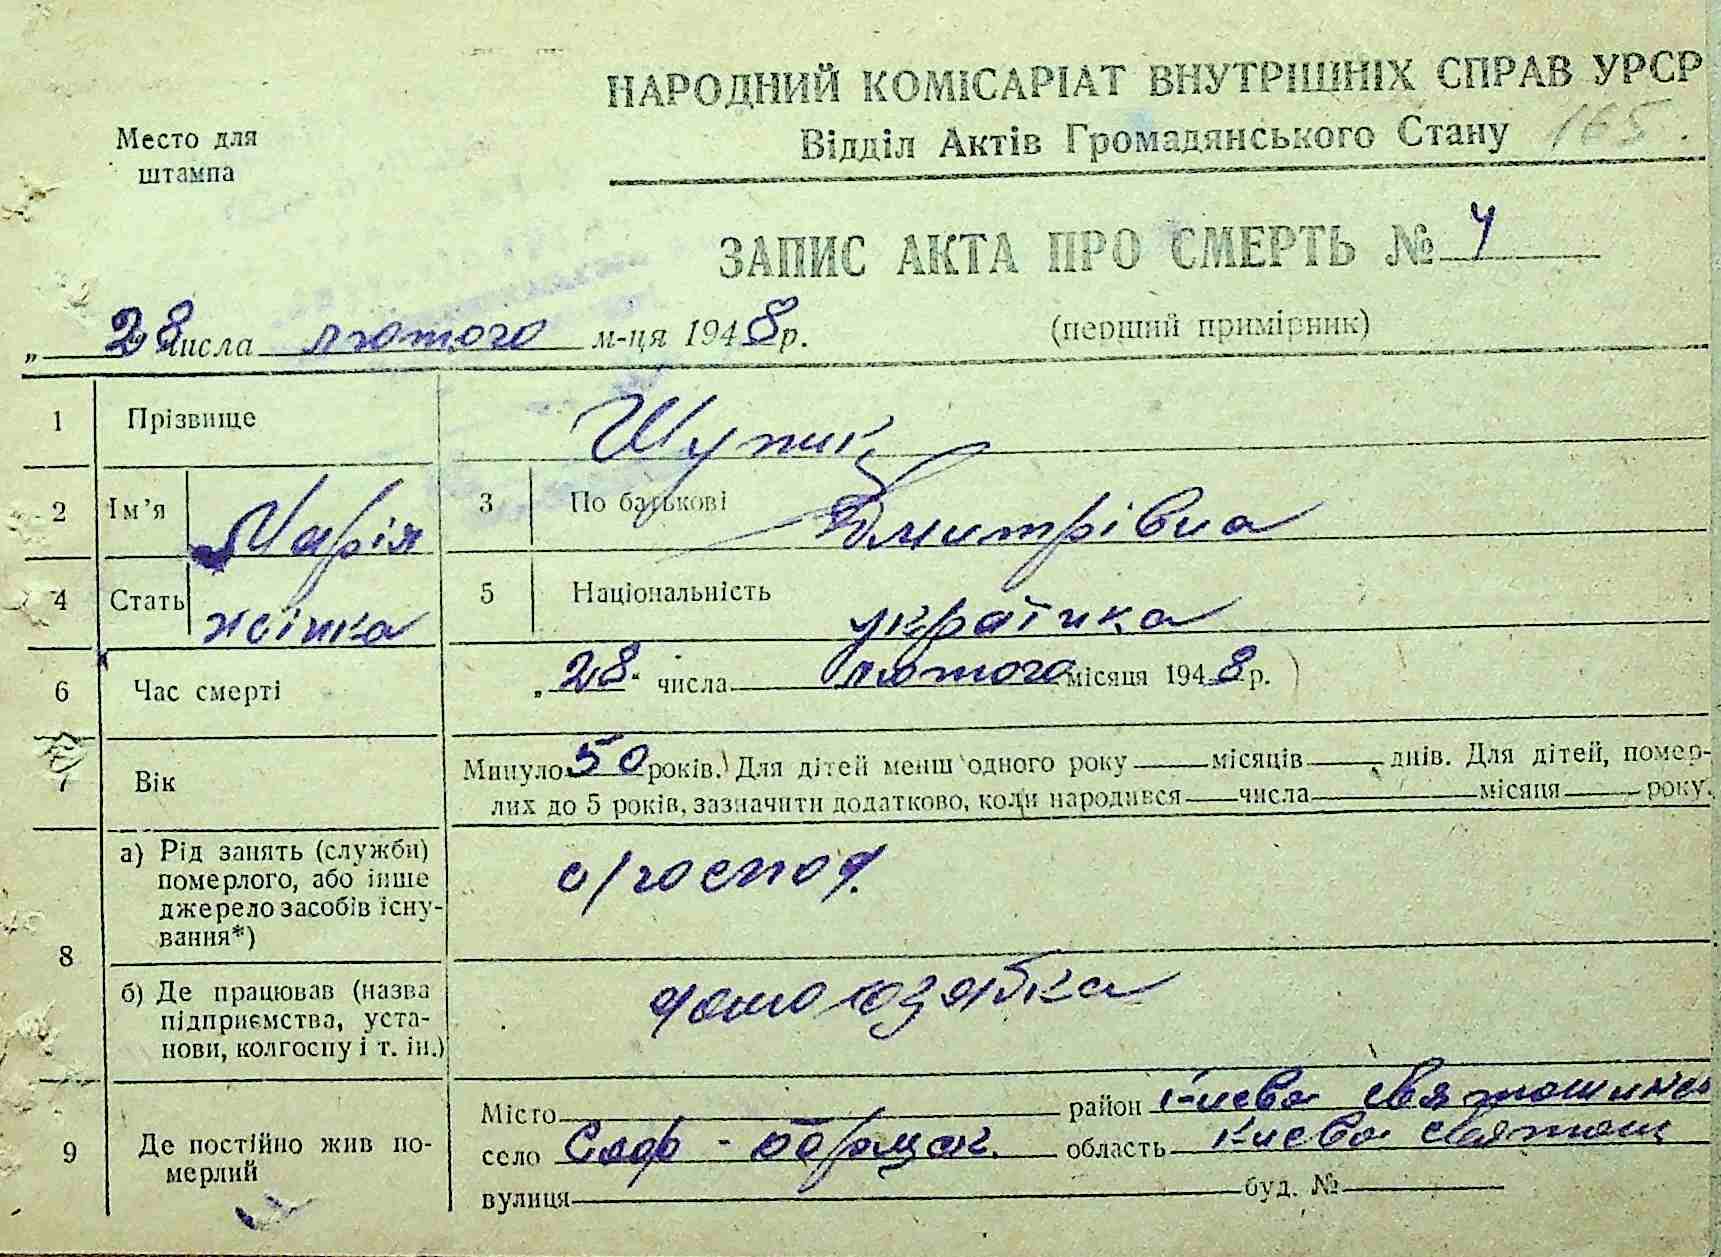 НАРОДНИЙ КОМІСАРІАТ ВНУТРІШНІХ СПРАВ УРСР
Відділ Актів Громадянського Стану 165.
Место для
штампа
ЗАПИС АКТА ПРО СМЕРТЬ № 4
(перший примірник)
„ 28 числа лютого м-ця 1948 р.
1 Прізвище Шупик
2 Ім’я Марія 3 По батькові Дмитрівна
4 Стать жінка 5 Національність українка
6 Час смерті „28“ числа лютого місяця 1948 р.
7 Вік Минуло 50 років. Для дітей менш одного року місяців днів. Для дітей, помер-
лих до 5 років, зазначити додатково, коли народився числа місяця року.
8 а) Рід занять (служби)
померлого, або інше
джерело засобів існу-
вання*)
о/господ.
б) Де працював (назва
підприємства, уста-
нови, колгоспу і т. ін.)
домохозяйка
9 Де постійно жив по-
мерлий
Місто район Києво Святошинсь
село Соф - Борщаг. область Києво Святош
вулиця буд. №